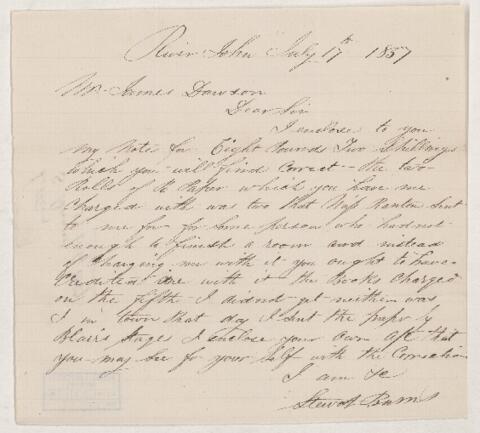 River John July 17th 1857
Mr James Dawson
Dear Sir
I enclose to you
My Note for Eight Pound Two Shillings
which you will find Correct - the two
Rolls of Paper which you have me
Charged with was two that Sent
to me for some person who had not
enough to finish a room and instead
of Charging me with it you ought to have
Credited me with it the Books Charged
on the fifth I did not get neither was
I in town that day I Sent the paper by
Blairs Stages I enclose your Own that
you may See for your Self with the Correction
I am &c
Burns